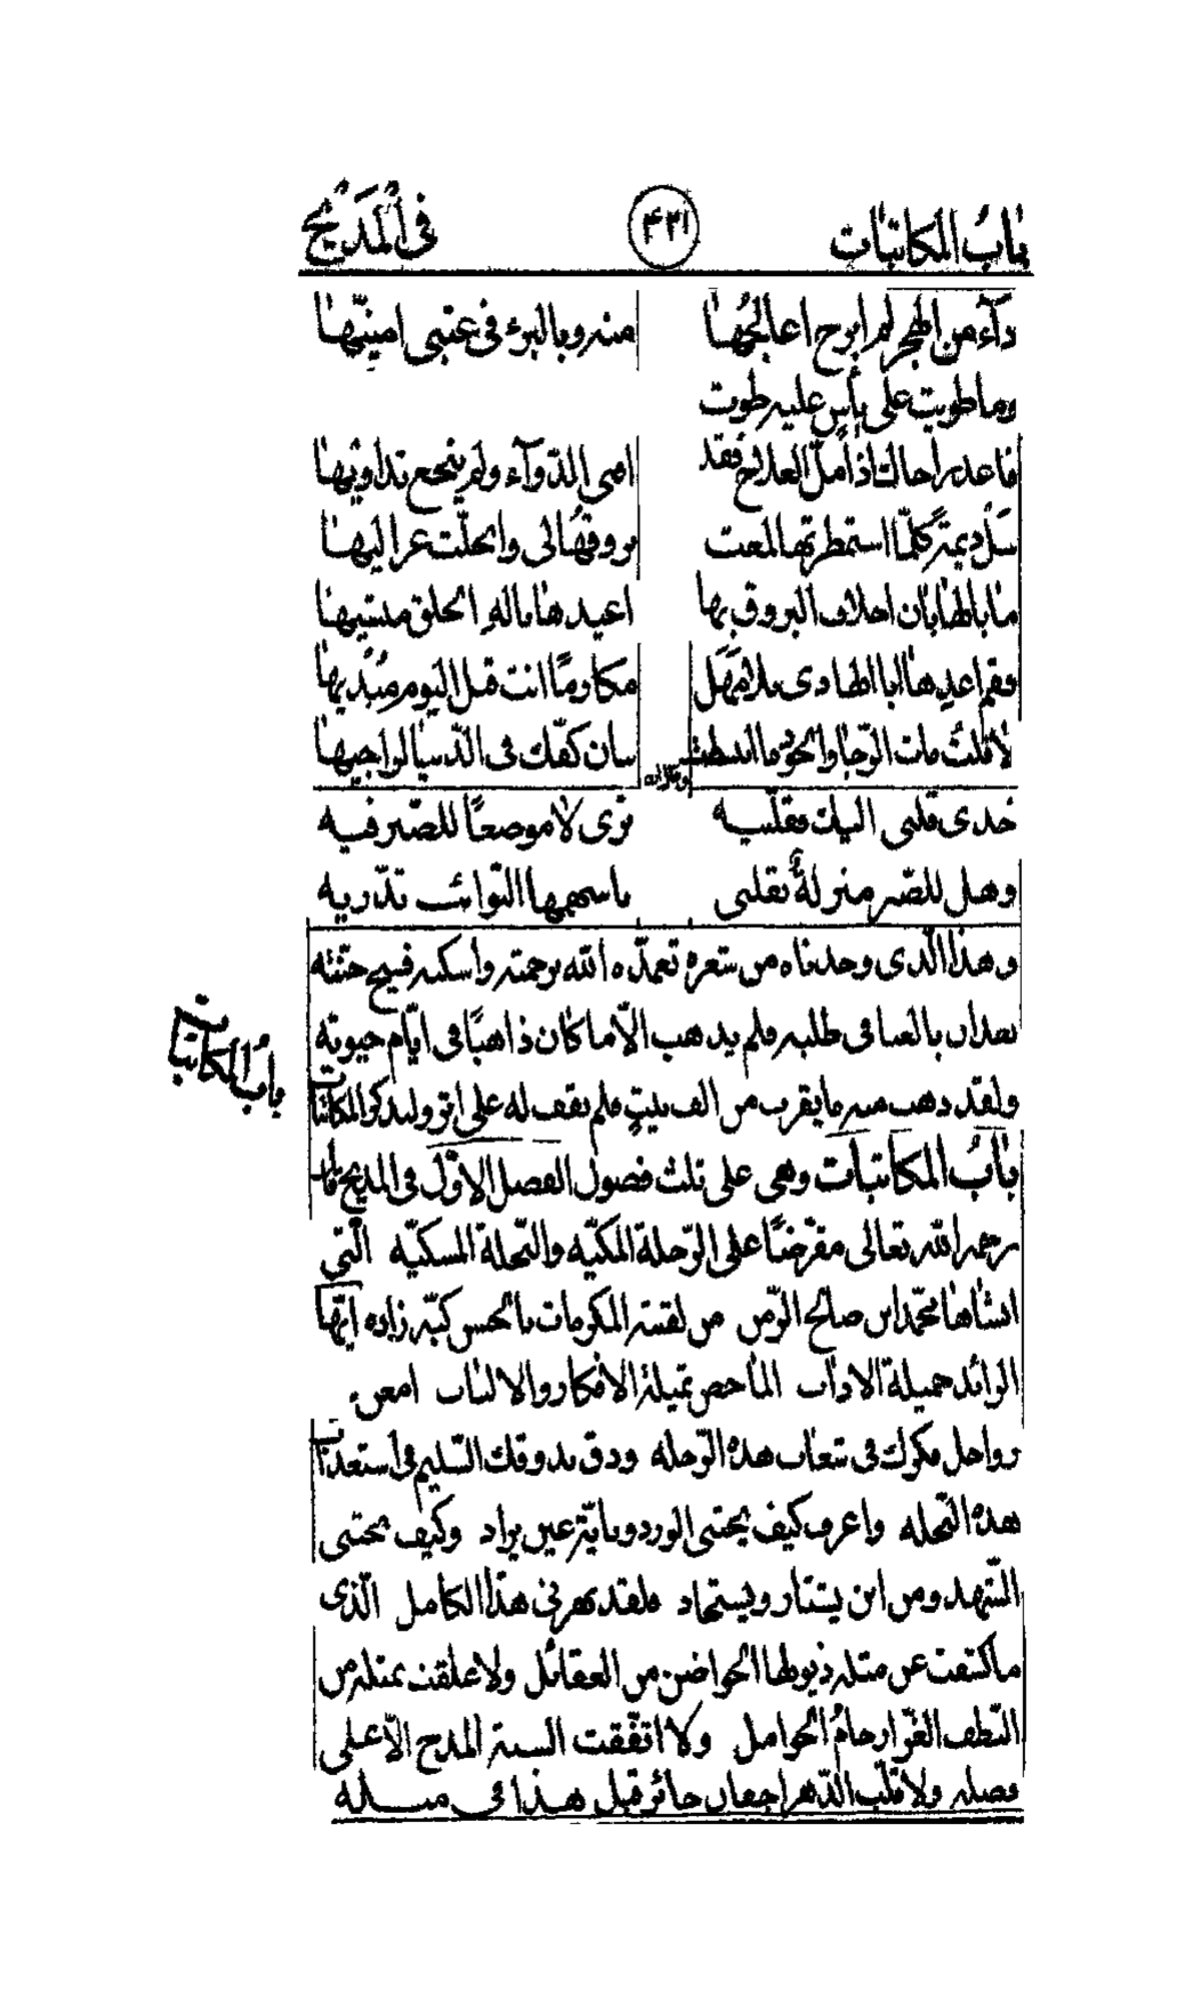 باب المكاتبات ۴۲۱ في المديح
دآء من الهجر لم ابرح اعالجها منه وبالبرء في عتبى امنيها
وما طويت على يأس عليه طوت
فاعد مراحاك اذ امل العلاج فقد اعيى الدوآء ولم ينجع تداويها
سل ديمة كلما استمطرتها لمعت بروقها لى وانحلت عزاليها
ما بالها بان اخلاف البروق بها اعيذها باله الخلق منشيها
فقم اعدها ابا الهادى بلا مهل مكارما انت قبل اليوم مبديها
لا قلت مات الرجا والجود ما انبسطت بنان كفك في الدنيا لراجيها
وقال رحمه الله
خدى قلبى اليك فقلبيه ترى لا موضعا للصبر فيه
وهل للصبر منزلة بقلبى باسهمها النوائب تدريه
وهذا الذى وجدناه من شعره تغمده الله برحمته واسكنه فسيح جنته
بعد ان بالغنا فى طلبه فلم يذهب الا ما كان ذاهبا فى ايام حيوته
ولقد ذهب منه ما يقرب من الف بيت فلم نقف له على اثر ولنذكر المكاتبات
باب المكاتبات
باب المكاتبات وهى على ثلث فصول الفصل الاول فى المديح قال
رحمه الله تعالى مقرضا على الرحلة المكيه والنحلة المسكيه التى
انشاها محمد ابن صالح الى من لقبته المكرمات بالحسن كبه زاده ايها
الرائد خميلة الاداب الماخض ثميلة الافكار والالباب امعن
رواحل فكرك فى شعاب هذه الرحله وذق بذوقك السليم فى استعذاب
هذه النحله واعرف كيف يجتنى الورد وبايّة عين يراد وكيف يجتنى
الشهد ومن اين يشتار ويستماد فلقد بهرنى هذا الكامل الذى
ما كشفت عن مثله ذيولها الحواضن من العقائل ولا علقت بمثله من
النطف الغر ارحام الحوامل ولا اتفقت السنة المدح الا على
فضله ولا قلب الدهر اجفان حائر قبل هذا فى مثله